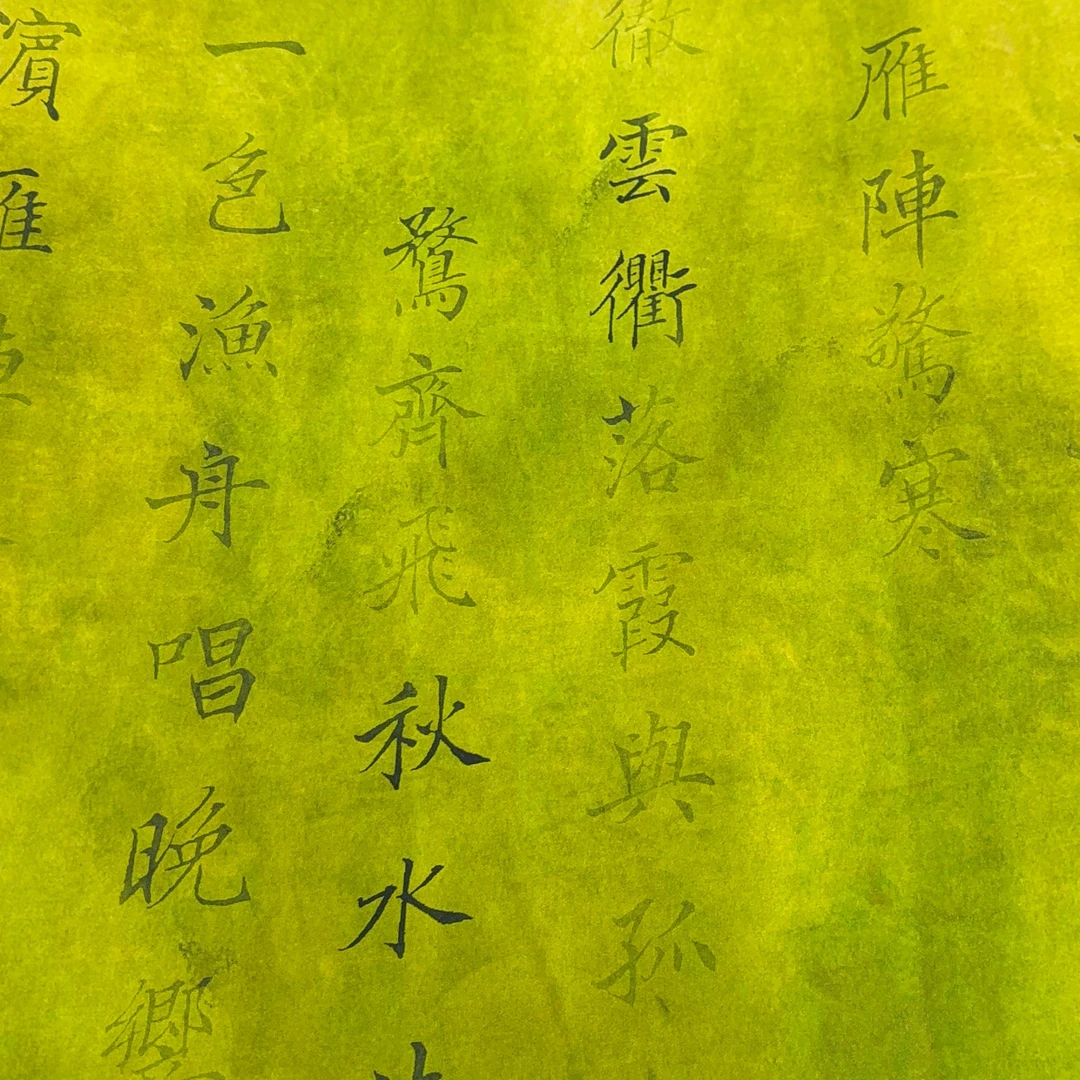 雁陣驚寒
徹雲衢落霞與孤
鶩齊飛秋水
一色漁舟唱晚響
濱雁